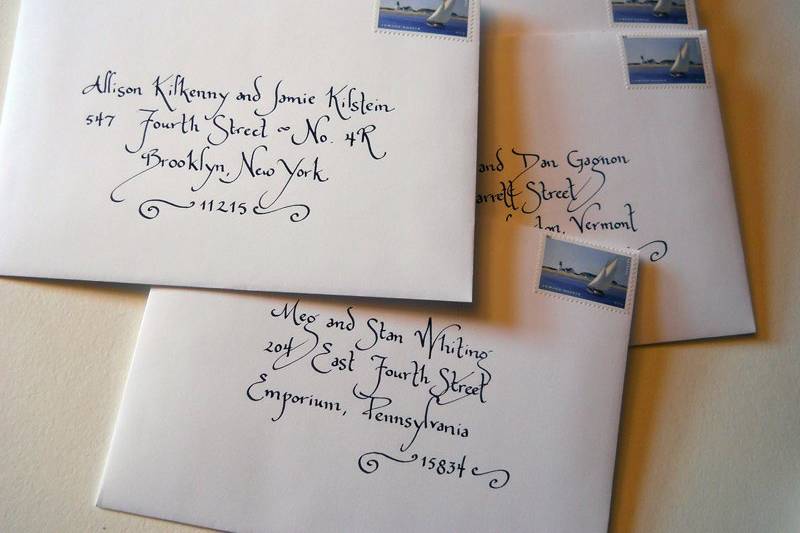 Allison Kilkenny and Jamie Kilstein
547 Fourth Street ~ No. 4R
Brooklyn, New York
11215
and Dan Gagnon
Street
Vermont
Meg and Stan Whiting
204 East Fourth Street
Emporium, Pennsylvania
15834